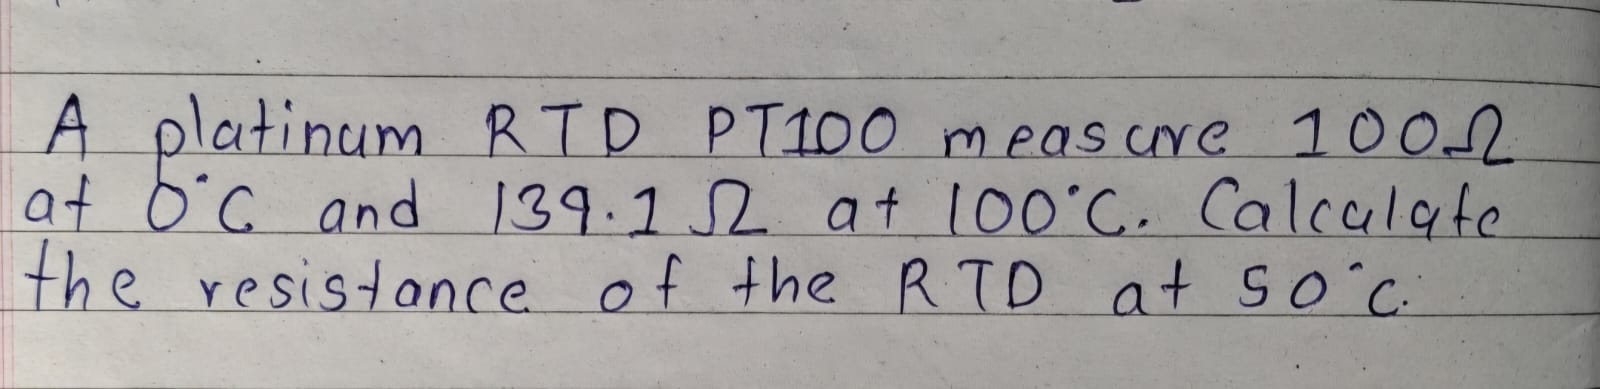 A platinum RTD PT100 measure 100Ω
at 0°C and 139.1Ω at 100°C. Calculate
the resistance of the RTD at 50°C.